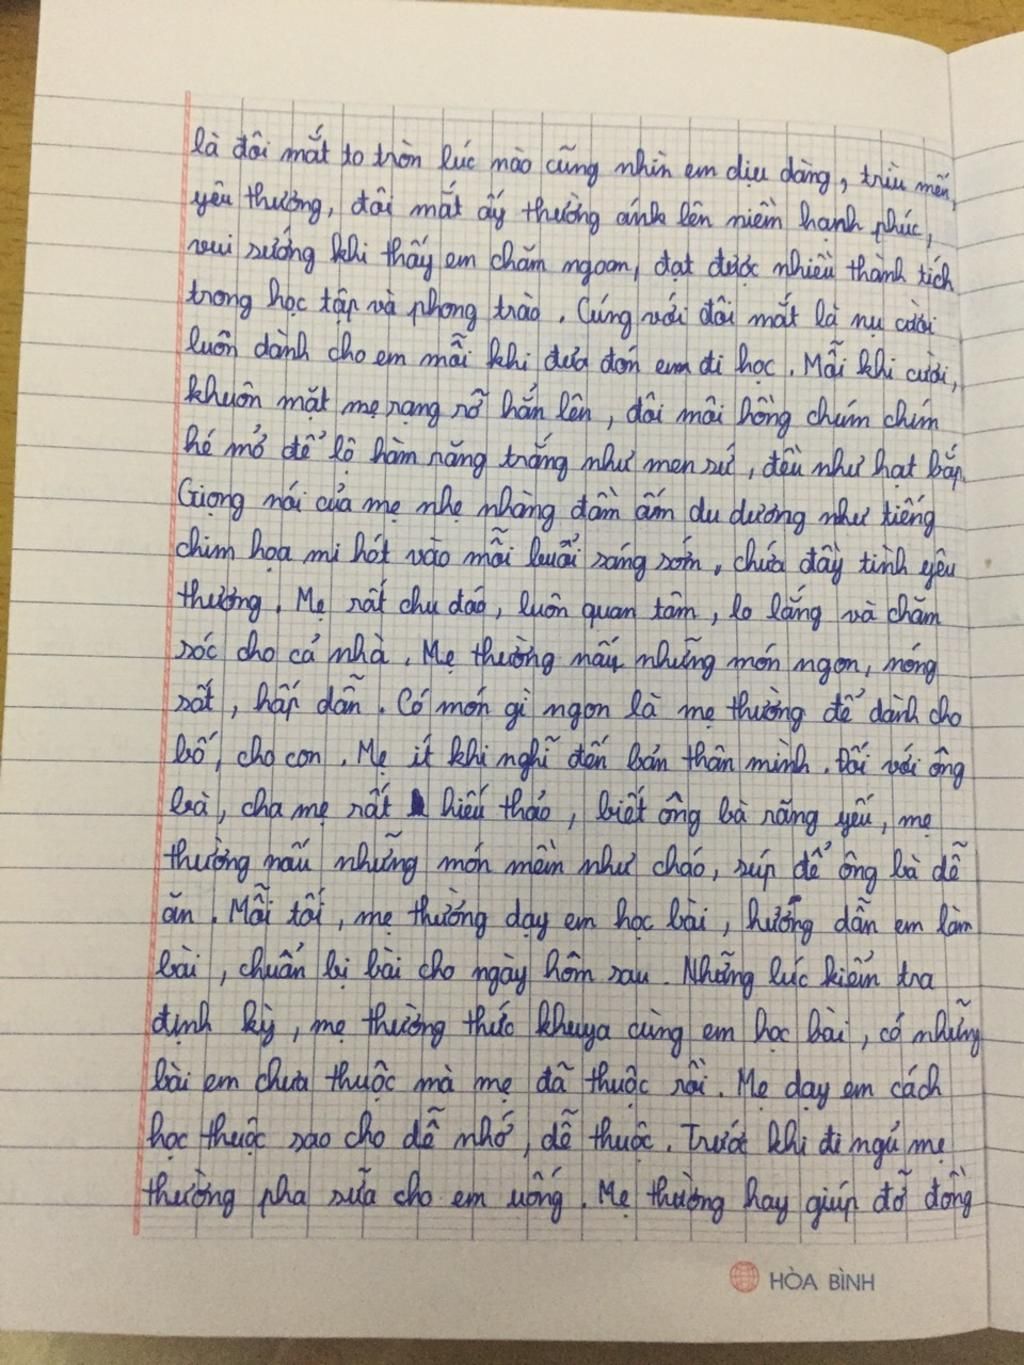 là đôi mắt to tròn lúc nào cũng nhìn em dịu dàng, trìu mến,
yêu thương, đôi mắt ấy thường ánh lên niềm hạnh phúc,
vui sướng khi thấy em chăm ngoan, đạt được nhiều thành tích
trong học tập và phong trào. Cúng với đôi mắt là nụ cười
luôn dành cho em mỗi khi đưa đón em đi học. Mỗi khi cười,
khuôn mặt mẹ rạng rỡ hẳn lên, đôi môi hồng chúm chím
hé mở để lộ hàm răng trắng như men sứ, đều như hạt bắp.
Giọng nói của mẹ nhẹ nhàng đầm ấm du dương như tiếng
chim họa mi hót vào mỗi buổi sáng sớm, chứa đầy tình yêu
thương. Mẹ rất chu đáo, luôn quan tâm, lo lắng và chăm
sóc cho cả nhà. Mẹ thường nấu những món ngon, nóng
sốt, hấp dẫn. Có món gì ngon là mẹ thường để dành cho
bố, cho con. Mẹ ít khi nghĩ đến bản thân mình. Đối với ông
bà, cha mẹ rất hiếu thảo, biết ông bà răng yếu, mẹ
thường nấu những món mềm như cháo, súp để ông bà dễ
ăn. Mỗi tối, mẹ thường dạy em học bài, hướng dẫn em làm
bài, chuẩn bị bài cho ngày hôm sau. Những lúc kiểm tra
định kỳ, mẹ thường thức khuya cùng em học bài, có những
bài em chưa thuộc mà mẹ đã thuộc rồi. Mẹ dạy em cách
học thuộc sao cho dễ nhớ, dễ thuộc. Trước khi đi ngủ mẹ
thường pha sữa cho em uống. Mẹ thường hay giúp đỡ đồng
HÒA BÌNH